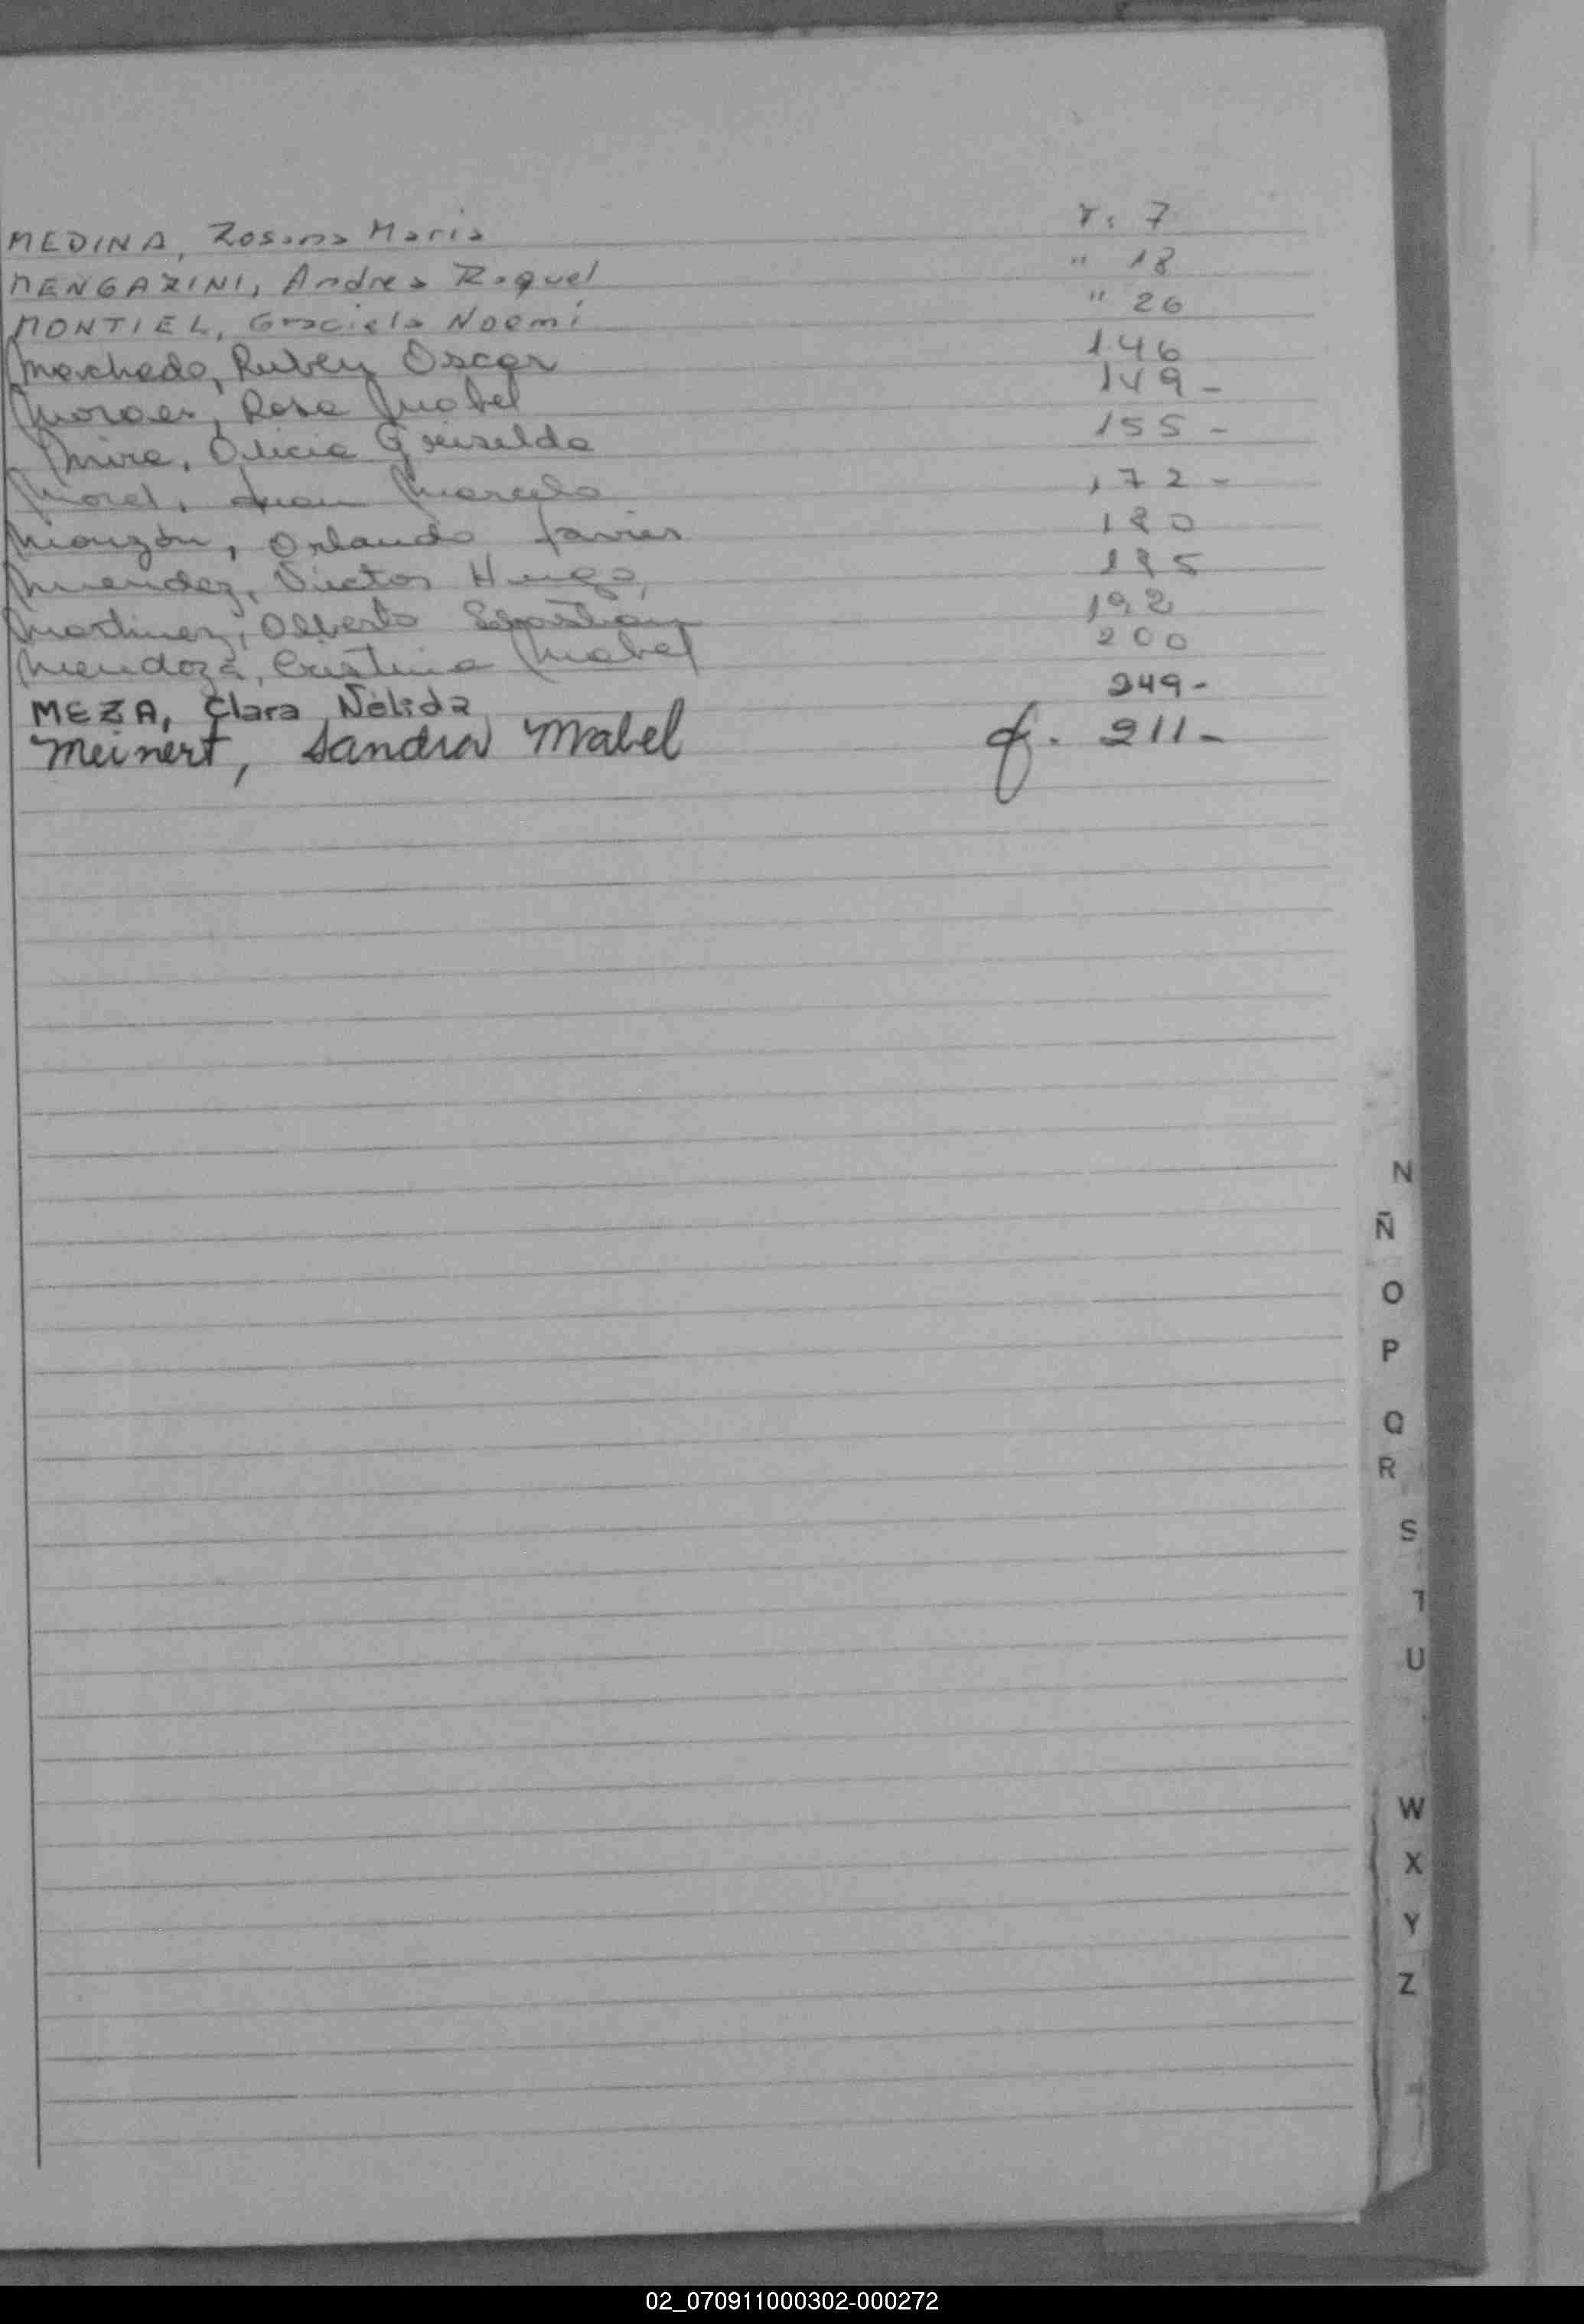 MEDINA, Rosana Maria F. 7
MENGAZINI, Andrea Raquel " 18
MONTIEL, Graciela Noemi " 26
Machado, Ruben Oscar 146
Moraes, Rosa Mabel 149-
Mira, Alicia Griselda 155-
Morel, Juan Marcelo 172-
Monzón, Orlando Javier 180
Mendez, Victor Hugo, 185
Martinez, Alberto Sebastian 192
Mendoza, Cristina Mabel 200
MEZA, Clara Nélida 249-
Meinert, Sandra Mabel f. 211-
N
Ñ
O
P
Q
R
S
T
U
W
X
Y
Z
02_070911000302-000272